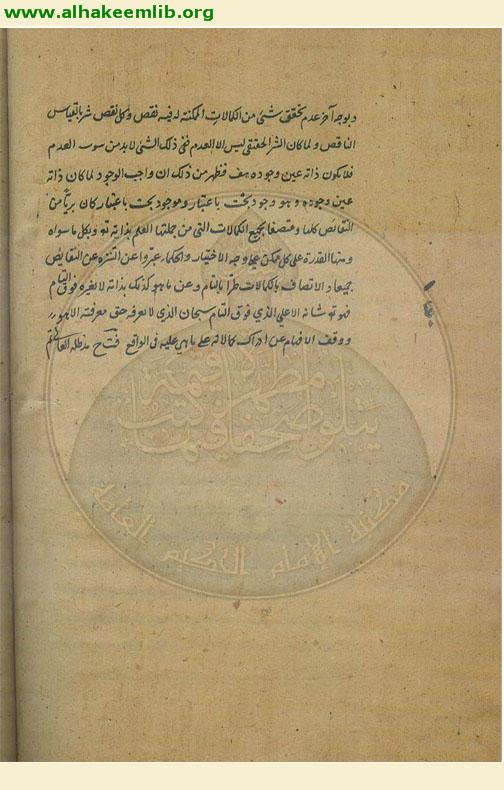 www.alhakeemlib.org
و بوجه آخر عدم تحقق شئ من الكمالات الممكنة له فيه نقص و كل نقص شر بالقياس
الناقص و لما كان الشر الحقيقى ليس الا العدم ففى ذلك الشئ لا بد من سوب العدم
فلا يكون ذاته عين وجوده هف فظهر من ذلك ان واجب الوجود لما كان ذاته
عين وجوده و هو وجود بحت باعتبار و موجود بحت باعتبار كان بريّا من
النقائص كلها و متصفا بجميع الكمالات التى من جملتها العلم بذاته تع و بكل ما سواه
و منها القدرة على كل ممكن على وجه الاختيار و الحكماء عبّروا عن التنزه عن النقائص
جميعا و الاتصاف بالكمالات طرّا بالتام و عن ما هو كذلك بذاته لا لغيره فوق التام
فهو تع شانه الاعلى الذى فوق التام سبحان الذى لا يعرفه حق معرفته الا هو
و وقف الافهام عن ادراك كمالاته على ما هى عليه فى الواقع مد ظله العالى
يتلوا صحفا مطهرة فيها كتب قيمة
مكتبة الإمام الحكيم العامة